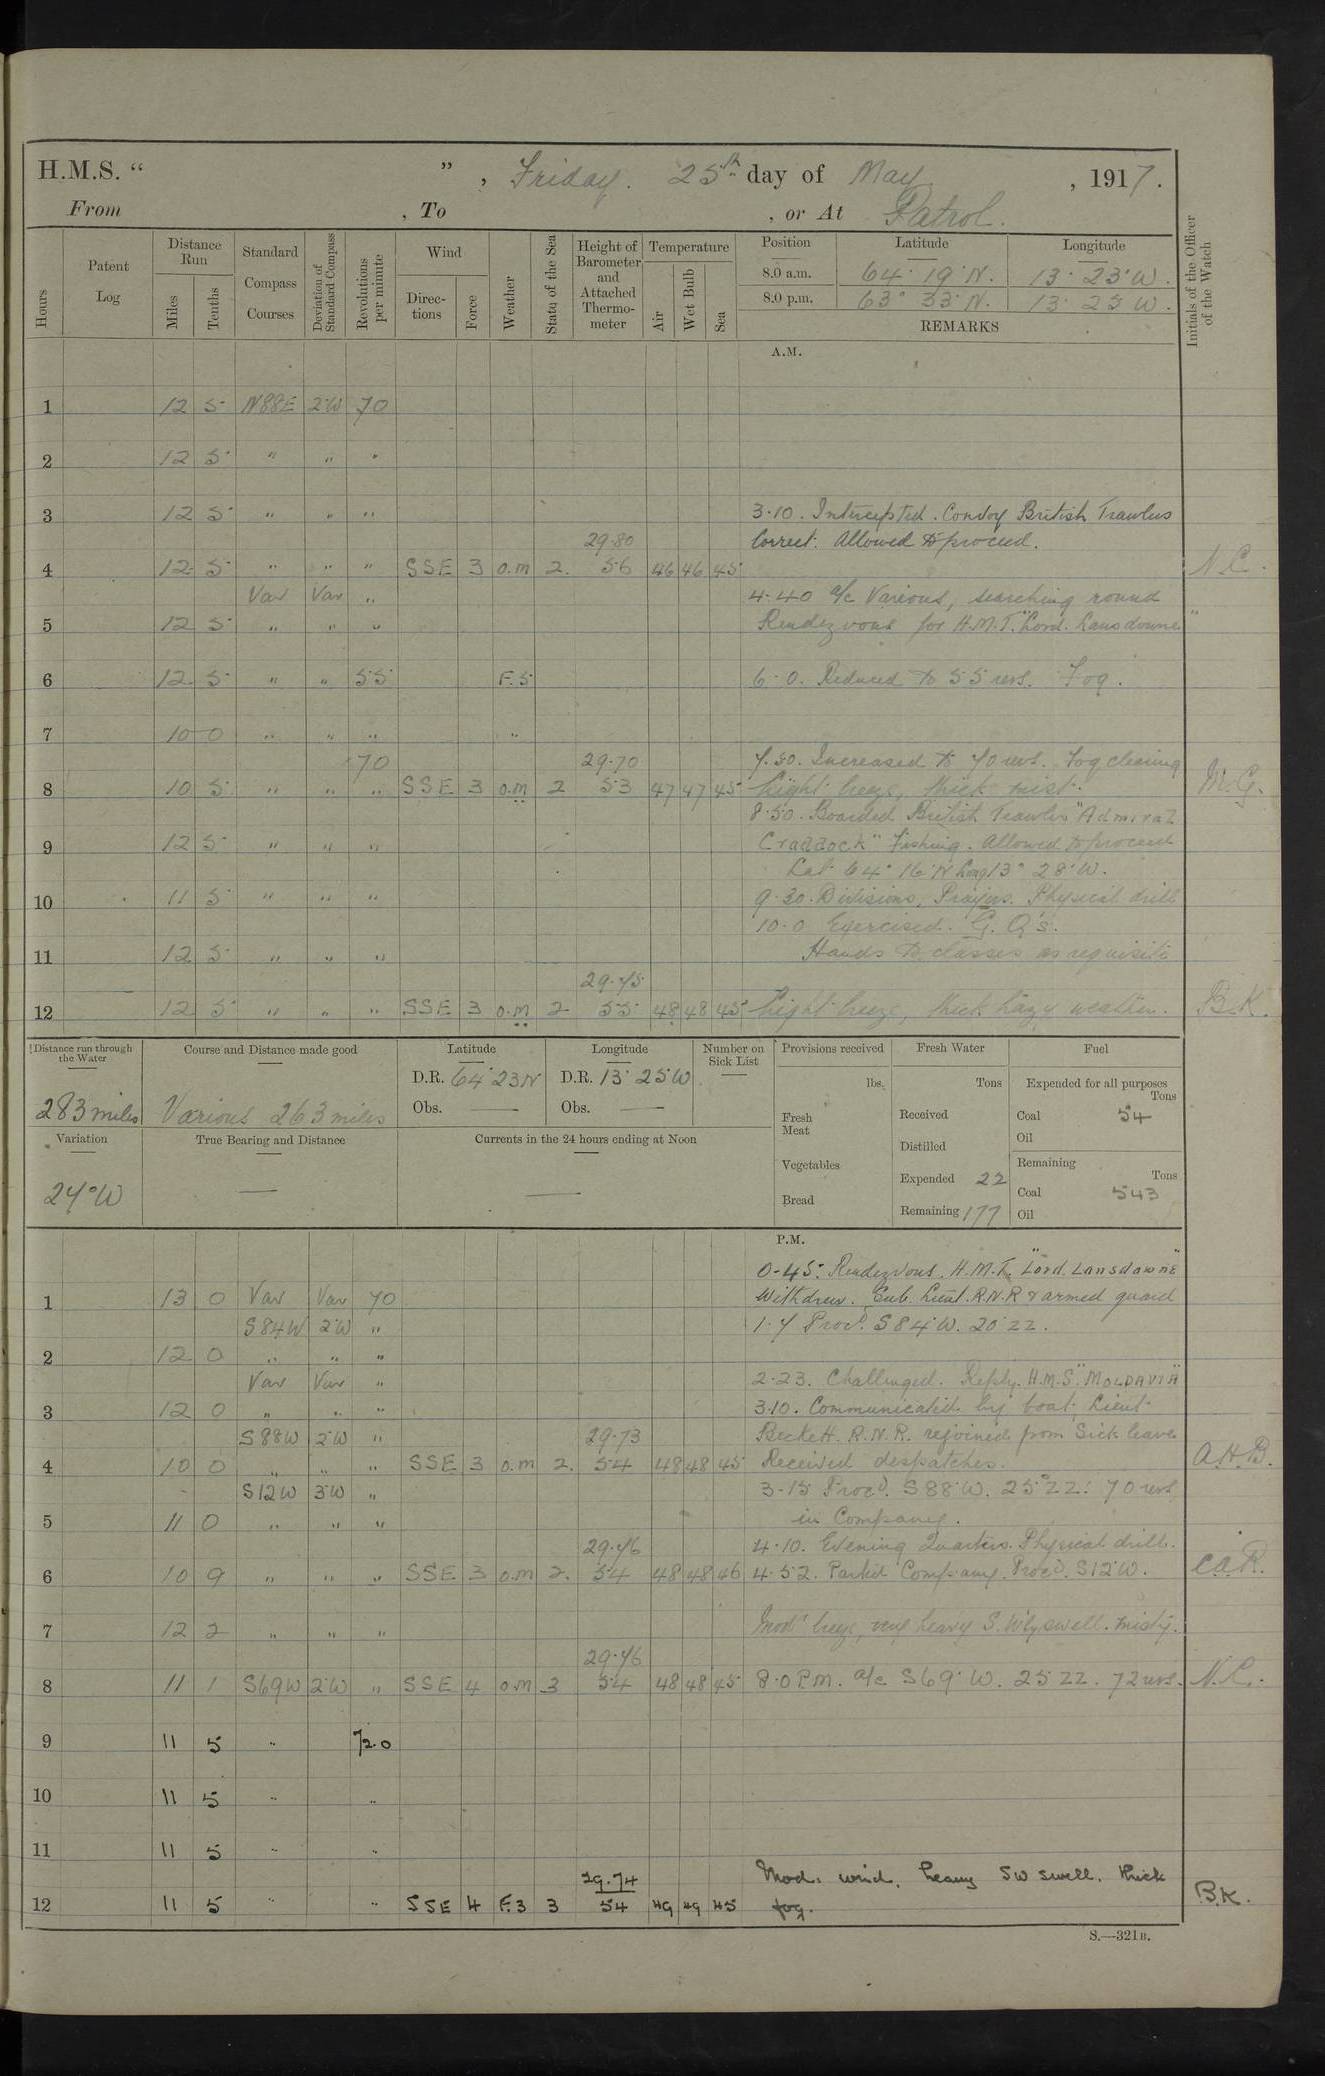 H.M.S. “ ” , Friday. 25th day of May , 1917.
From , To , or At Patrol.
Hours
Patent Log
Distance Run
Miles
Tenths
Standard Compass Courses
Deviation of Standard Compass
Revolutions per minute
Wind
Direc-tions
Force
Weather
State of the Sea
Height of Barometer and Attached Thermo-meter
Temperature
Air
Wet Bulb
Sea
Position Latitude Longitude
8.0 a.m. 64° 19' N. 13° 23' W.
8.0 p.m. 63° 33' N. 13° 25 W.
REMARKS
Initials of the Officer of the Watch
A.M.
1 12 5 N88E 2°W 70
2 12 5 " " "
3 12 5 " " " 3.10. Intercepted. Convoy British Trawlers
29.80 Correct. Allowed to proceed.
4 12 5 " " " SSE 3 o.m 2. 56 46 46 45 N.C.
Var Var " 4.40 a/c Various, searching round
5 12 5 " " " Rendezvous for H.M.T. "Lord. Lansdowne"
6 12 5 " " 55 F.5 6.0. Reduced to 55 revs. Fog.
7 10 0 " " " "
70 29.70 7.30. Increased to 70 revs. Fog clearing
8 10 5 " " " SSE 3 o.m 2 53 47 47 45 Light breeze, thick mist. M.G.
8.50. Boarded British Trawler "Admiral
9 12 5 " " " Craddock" Fishing. Allowed to proceed
Lat 64° 16' N Long 13° 28' W.
10 11 5 " " " 9.30. Divisions, Prayers. Physical drill
10.0 Exercised. G. Q's.
11 12 5 " " " Hands to classes as requisite
29.75
12 12 5 " " " SSE 3 o.m 2 55 48 48 45 Light breeze, thick hazy weather. B.K.
Distance run through the Water
283 miles
Course and Distance made good
Various 263 miles
Latitude
D.R. 64° 23 N
Obs. —
Longitude
D.R. 13° 25 W
Obs. —
Number on Sick List
—
Provisions received
lbs.
Fresh Meat
Vegetables
Bread
Fresh Water
Tons
Received
Distilled
Expended 22
Remaining 177
Fuel
Expended for all purposes
Tons
Coal 54
Oil
Remaining
Tons
Coal 543
Oil
Variation
24°W
True Bearing and Distance
—
Currents in the 24 hours ending at Noon
—
P.M.
0-45. Rendezvous. H.M.T. "Lord. Lansdowne"
1 13 0 Var Var 70 Withdrew. Sub. Lieut. R.N.R & armed guard
S84W 2°W " 1.7 Procd. S84°W. 20 ZZ.
2 12 0 " " "
Var Var " 2.23. Challenged. Reply. H.M.S "MOLDAVIA"
3 12 0 " " " 3.10. Communicated by boat, Lieut
S88W 2°W " 29.73 Beckett. R.N.R. rejoined from Sick leave
4 10 0 " " " SSE 3 o.m 2. 54 48 48 45 Received despatches. A.H.B.
S12W 3°W " 3-15 Procd. S88°W. 25° ZZ. 70 revs
5 11 0 " " " in Company.
29.76 4.10. Evening Quarters. Physical drill.
6 10 9 " " " SSE 3 o.m 2. 54 48 48 46 4.52. Parted Company. Procd. S12°W. C.A.R.
7 12 2 " " " Modt breeze, very heavy S. W'ly swell. misty.
29.76
8 11 1 S69W 2°W " SSE 4 o.m 3 54 48 48 45 8.0 P.M. a/c S69°W. 25 ZZ. 72 revs. N.C.
9 11 5 " 72.0
10 11 5 " "
11 11 5 " "
29.74 Mod. wind, heavy SW swell. thick
12 11 5 " " SSE 4 F.3 3 54 49 49 45 fog. B.K.
S.—321B.